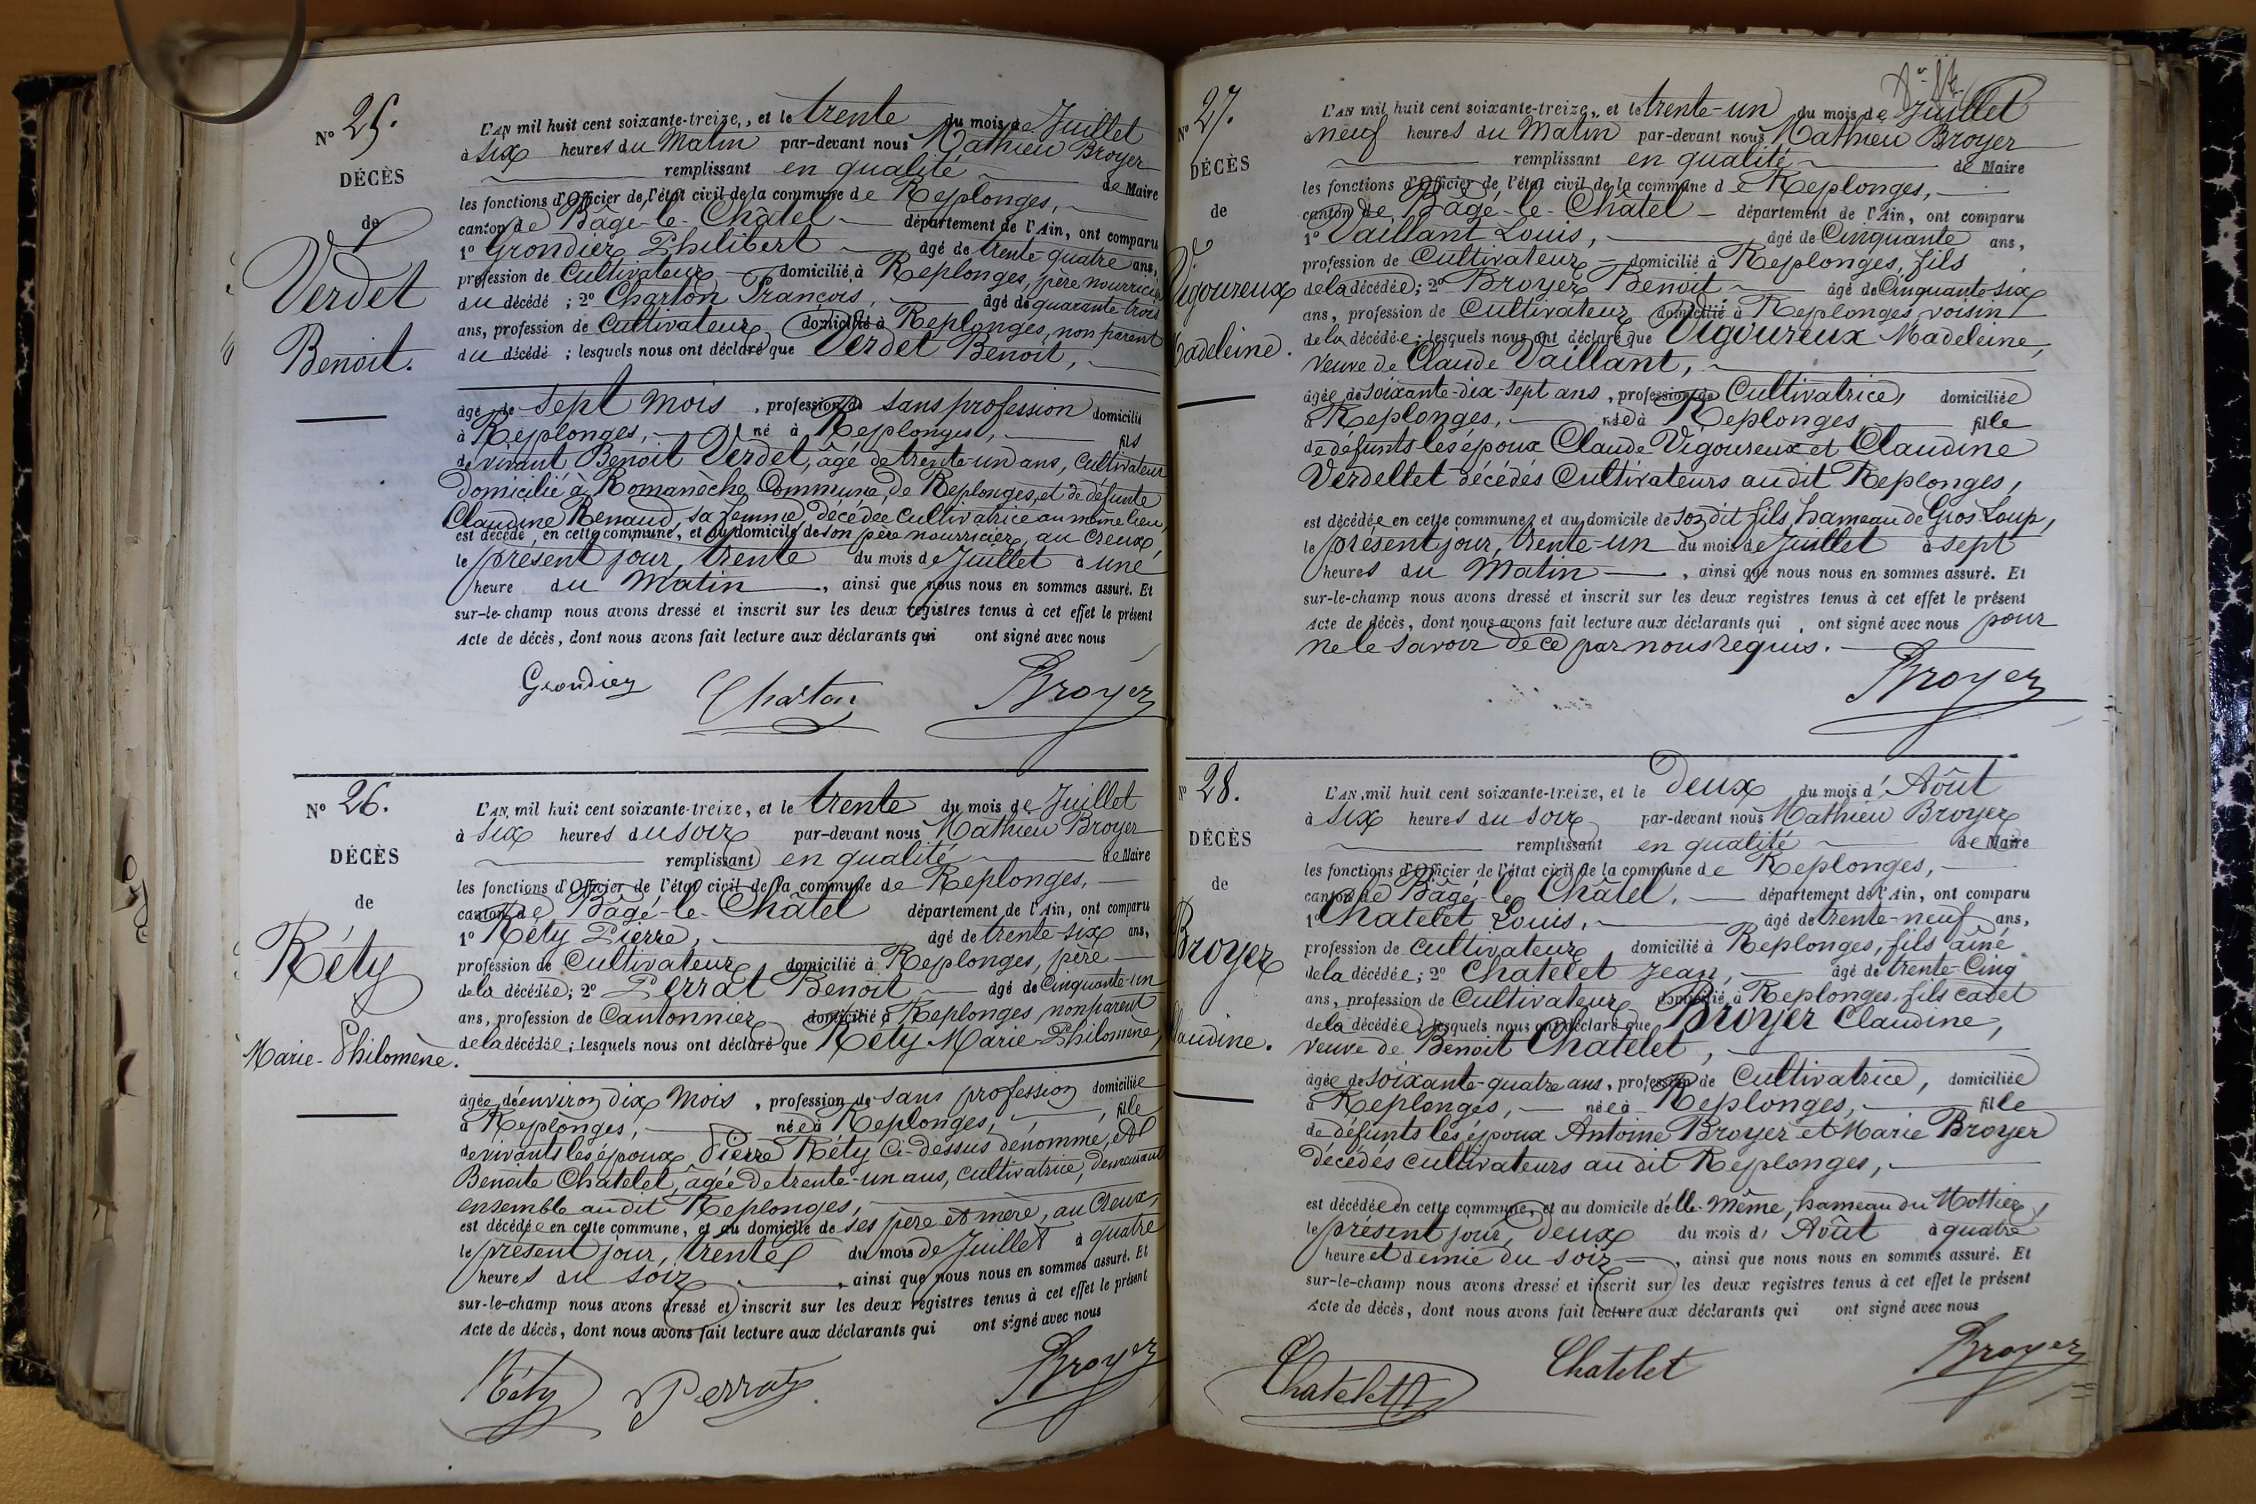 N° 25.
DÉCÈS
de
Verdet
Benoit.
L'AN mil huit cent soixante-treize, et le trente du mois de Juillet
à six heures du Matin par-devant nous Mathieu Broyer
remplissant en qualité de Maire
les fonctions d'Officier de l'état civil de la commune de Replonges,
canton de Bâgé-le-Châtel département de l'Ain, ont comparu
1° Grondier Philibert âgé de trente-quatre ans,
profession de Cultivateur domicilié à Replonges, père nourricier
du décédé ; 2° Charton François, âgé de quarante-trois
ans, profession de Cultivateur, domicilié à Replonges, non parent
du décédé ; lesquels nous ont déclaré que Verdet Benoit,
âgé de sept mois, profession de sans profession domicilié
à Replonges, né à Replonges, fils
de vivant Benoit Verdet, âgé de trente-un ans, Cultivateur
domicilié à Romanèche Commune de Replonges, et de défunte
Claudine Renaud sa femme décédée cultivatrice au même lieu,
est décédé, en cette commune, et au domicile de son père nourricier, au Creux,
le présent jour, trente du mois de Juillet à une
heure du Matin, ainsi que nous nous en sommes assuré. Et
sur-le-champ nous avons dressé et inscrit sur les deux registres tenus à cet effet le présent
Acte de décès, dont nous avons fait lecture aux déclarants qui ont signé avec nous
Grondier Charton Broyer
N° 26.
DÉCÈS
de
Réty
Marie-Philomène.
L'AN mil huit cent soixante-treize, et le trente du mois de Juillet
à six heures du soir par-devant nous Mathieu Broyer
remplissant en qualité de Maire
les fonctions d'Officier de l'état civil de la commune de Replonges,
canton de Bâgé-le-Châtel département de l'Ain, ont comparu
1° Réty Pierre, âgé de trente-six ans,
profession de Cultivateur, domicilié à Replonges, père
de la décédée; 2° Perrat Benoit âgé de Cinquante-un
ans, profession de Cantonnier domicilié à Replonges non parent
de la décédée ; lesquels nous ont déclaré que Réty Marie-Philomène,
âgée d'environ dix mois, profession de sans profession domiciliée
à Replonges, née à Replonges, fille
de vivants les époux Pierre Réty Ci-dessus dénommé, et
Benoite Chatelet, âgée de trente-un ans, cultivatrice, demeurant
ensemble audit Replonges,
est décédée en cette commune, et au domicile de ses père et mère, au Creux,
le présent jour, trente du mois de Juillet à quatre
heures du soir, ainsi que nous nous en sommes assuré. Et
sur-le-champ nous avons dressé et inscrit sur les deux registres tenus à cet effet le présent
Acte de décès, dont nous avons fait lecture aux déclarants qui ont signé avec nous
Réty Perrat Broyer
N° 27.
DÉCÈS
de
Vigoureux
Madeleine.
L'AN mil huit cent soixante-treize, et le trente-un du mois de Juillet
à neuf heures du Matin par-devant nous Mathieu Broyer
remplissant en qualité de Maire
les fonctions d'Officier de l'état civil de la commune de Replonges,
canton de Bâgé-le-Châtel département de l'Ain, ont comparu
1° Vaillant Louis, âgé de Cinquante ans,
profession de Cultivateur domicilié à Replonges, fils
de la décédée; 2° Broyer Benoit âgé de Cinquante-six
ans, profession de Cultivateur domicilié à Replonges voisin
de la décédée ; lesquels nous ont déclaré que Vigoureux Madeleine,
veuve de Claude Vaillant,
âgée de soixante-dix-sept ans, profession de Cultivatrice, domiciliée
à Replonges, née à Replonges fille
de défunts les époux Claude Vigoureux et Claudine
Verdellet décédés Cultivateurs audit Replonges,
est décédée en cette commune, et au domicile de son dit fils, hameau de Gros Loup,
le présent jour, trente-un du mois de Juillet à sept
heures du Matin, ainsi que nous nous en sommes assuré. Et
sur-le-champ nous avons dressé et inscrit sur les deux registres tenus à cet effet le présent
Acte de décès, dont nous avons fait lecture aux déclarants qui ont signé avec nous pour
ne le savoir de ce par nous requis.
Broyer
N° 28.
DÉCÈS
de
Broyer
Claudine.
L'AN mil huit cent soixante-treize, et le deux du mois d'Août
à six heures du soir par-devant nous Mathieu Broyer
remplissant en qualité de Maire
les fonctions d'Officier de l'état civil de la commune de Replonges,
canton de Bâgé-le-Châtel, département de l'Ain, ont comparu
1° Chatelet Louis, âgé de trente-neuf ans,
profession de cultivateur domicilié à Replonges, fils aîné
de la décédée; 2° Chatelet Jean, âgé de trente-Cinq
ans, profession de Cultivateur domicilié à Replonges, fils cadet
de la décédée; lesquels nous ont déclaré que Broyer Claudine,
veuve de Benoit Chatelet,
âgée de soixante-quatre ans, profession de Cultivatrice, domiciliée
à Replonges, née à Replonges, fille
de défunts les époux Antoine Broyer et Marie Broyer
décédés cultivateurs audit Replonges,
est décédée en cette commune, et au domicile d'elle-Même, hameau du Mottier,
le présent jour, deux du mois d'Août à quatre
heure et demie du soir, ainsi que nous nous en sommes assuré. Et
sur-le-champ nous avons dressé et inscrit sur les deux registres tenus à cet effet le présent
Acte de décès, dont nous avons fait lecture aux déclarants qui ont signé avec nous
Chatelet Chatelet Broyer